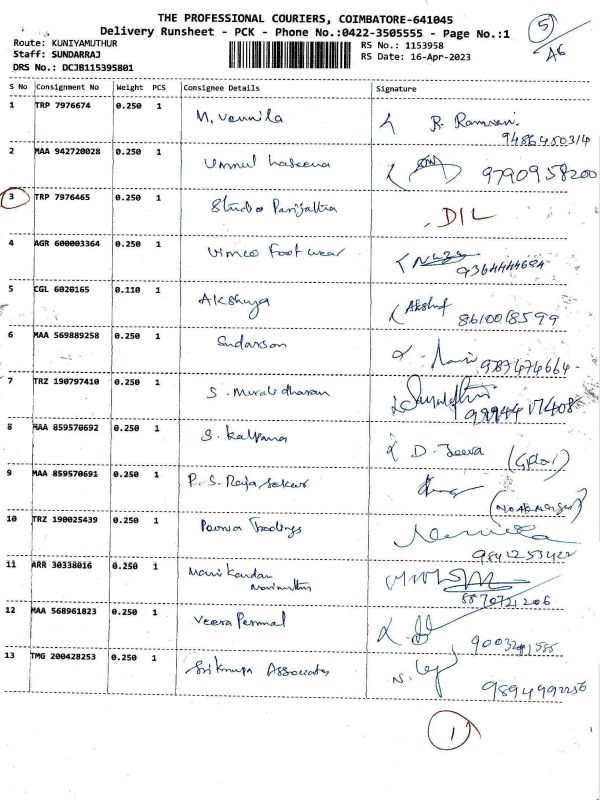 THE PROFESSIONAL COURIERS, COIMBATORE-641045
Delivery Runsheet - PCK - Phone No.:0422-3505555 - Page No.:1
5/A6
Route: KUNIYAMUTHUR
RS No.: 1153958
Staff: SUNDARRAJ
RS Date: 16-Apr-2023
DRS No.: DCJB115395801
S No Consignment No Weight PCS Consignee Details Signature
1 TRP 7976674 0.250 1 M. Vennila R. Ramani
9486450314
2 MAA 942720028 0.250 1 Ummul haseena 9790958200
3 TRP 7976465 0.250 1 Studio Parijatha DIL
4 AGR 600003364 0.250 1 Vimco Foot wear
9364444684
5 CGL 6020165 0.110 1 Akshaya Akshaf
8610018599
6 MAA 569889258 0.250 1 Sundarson
9783474664
7 TRZ 190797410 0.250 1 S. Muralidharan
8 MAA 859570692 0.250 1 S. Kalpana D. Jeeva
9 MAA 859570691 0.250 1 P. S. Raja Sekar
10 TRZ 190025439 0.250 1 Parva Tradings
9841253422
11 ARR 30338016 0.250 1 Manikandan
Marimuthu
8870721206
12 MAA 568961823 0.250 1 Veera Perumal
13 TMG 200428253 0.250 1 Srikrupa Associates
9894492256
1